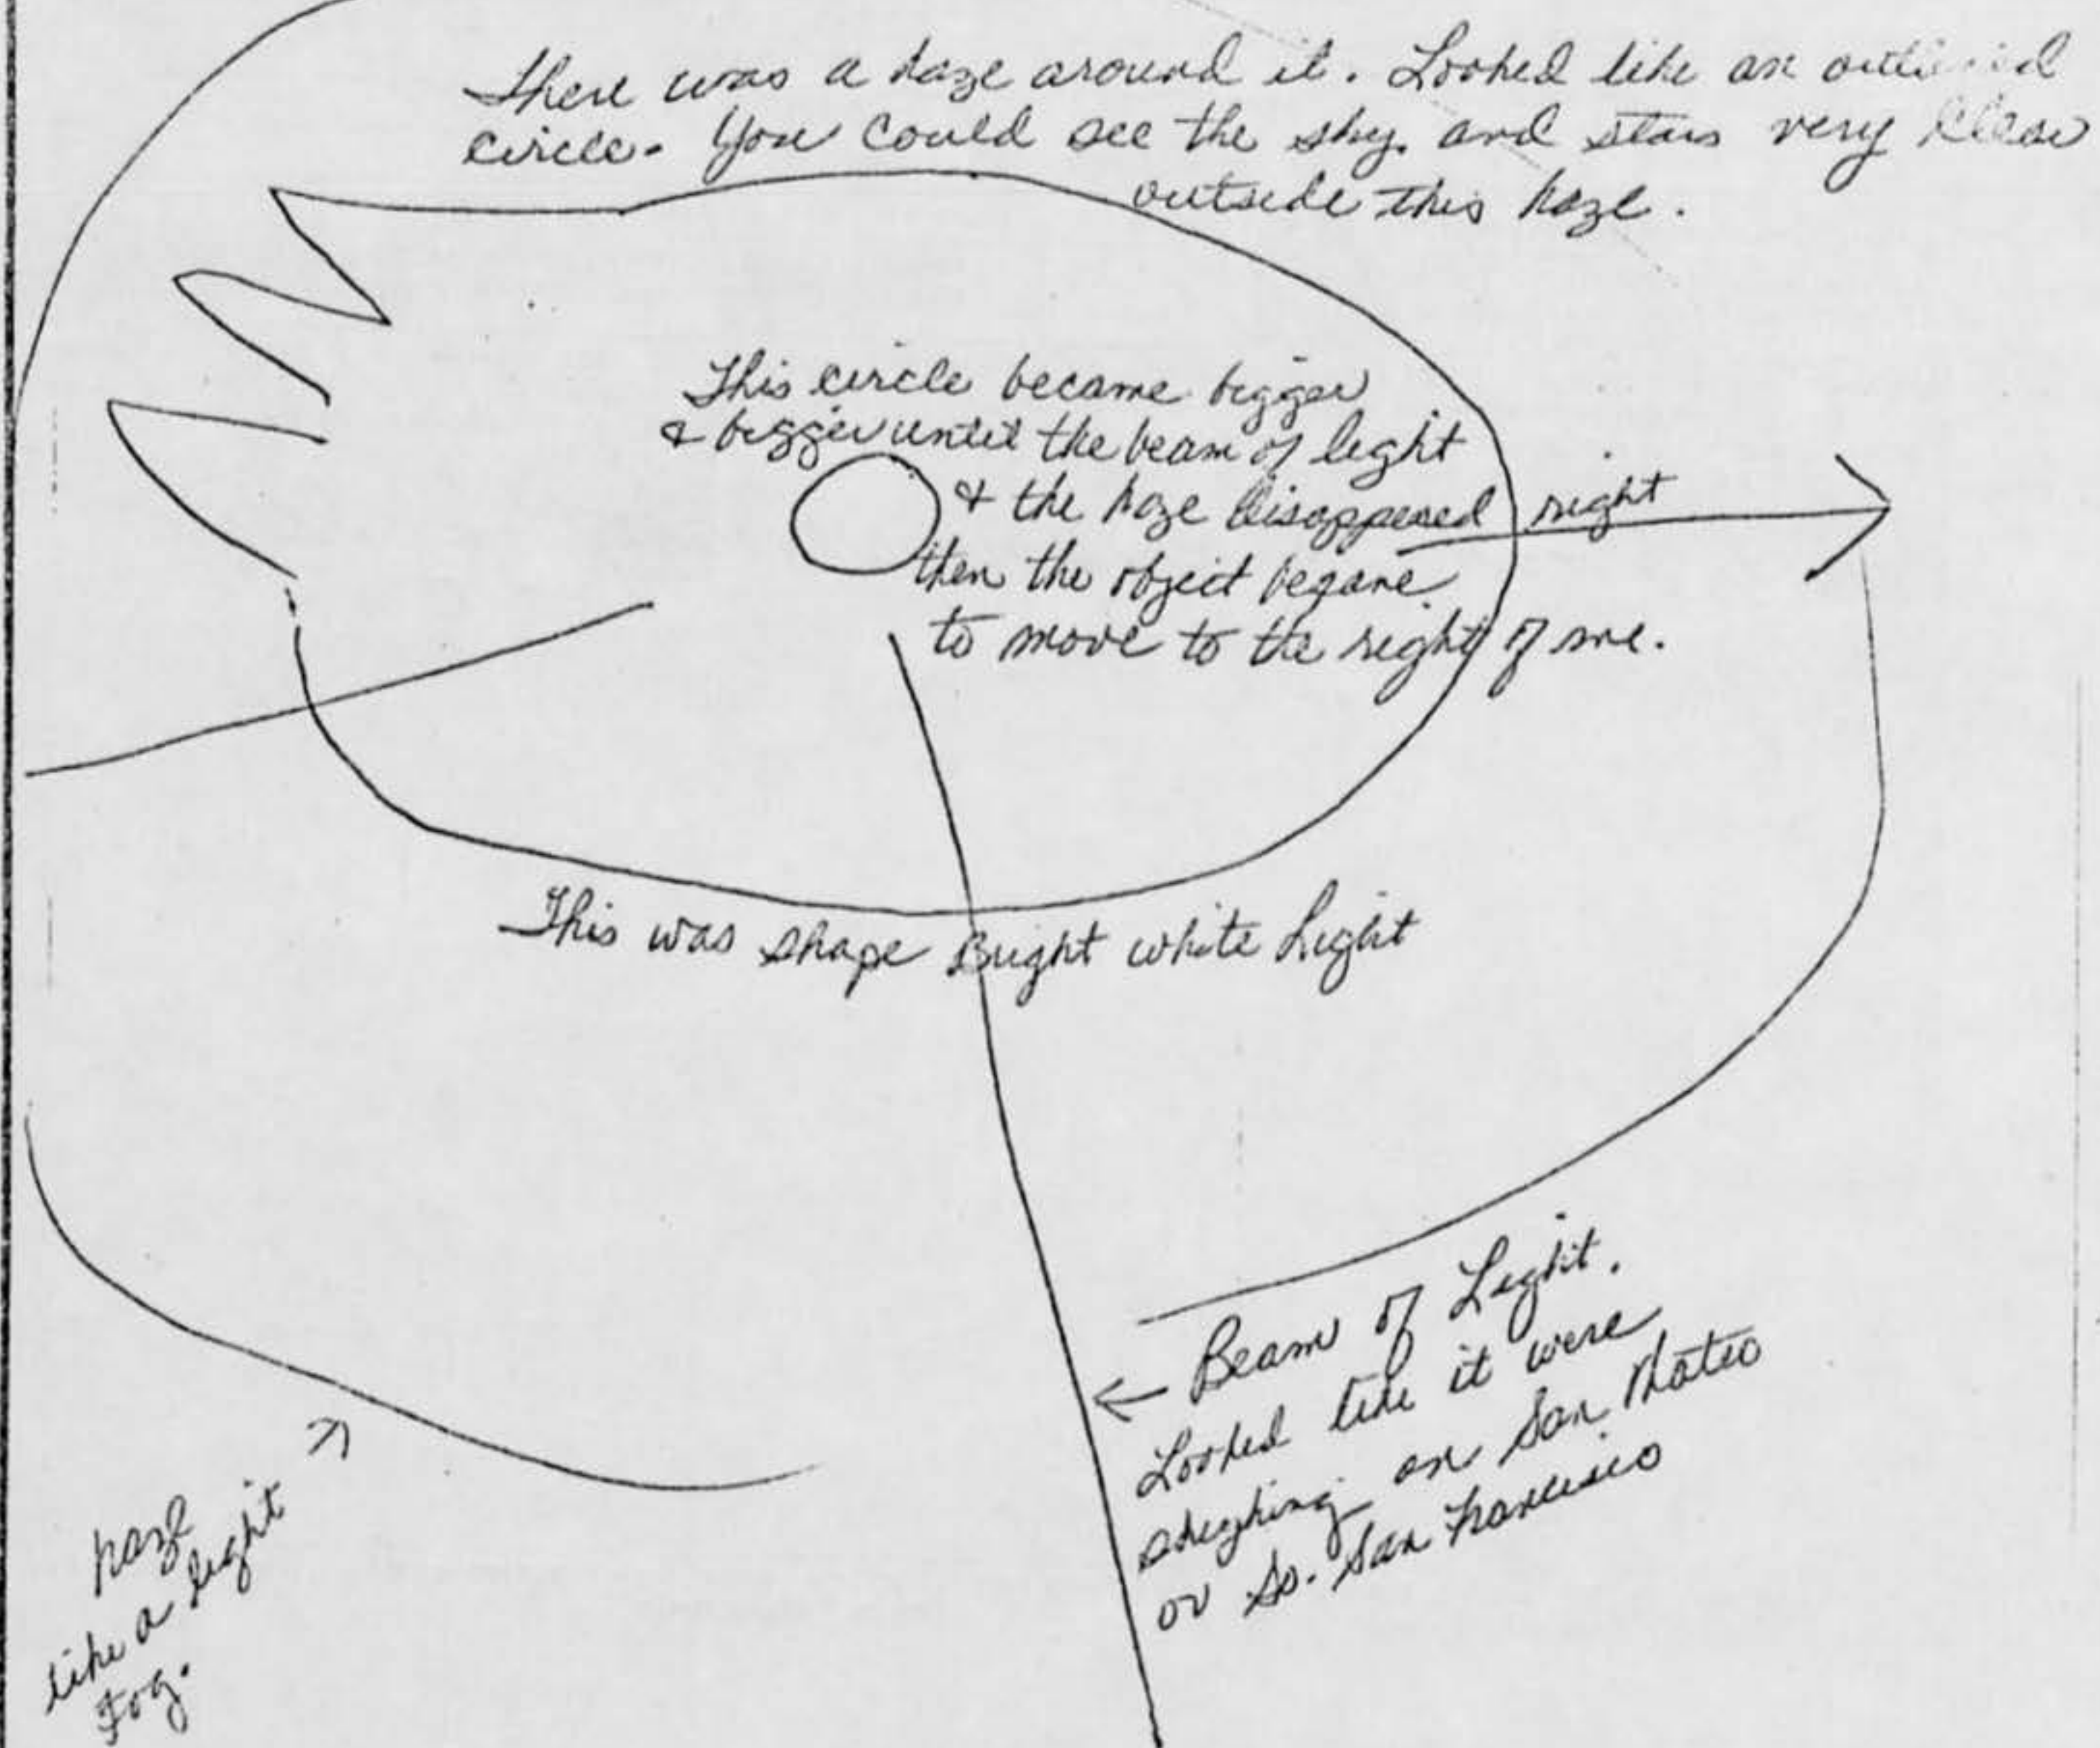 There was a haze around it. Looked like an outlined
circle. You could see the sky. and stars very clear
outside this haze.
This circle became bigger
& bigger until the beam of light
& the haze disappeared
right
then the object begane
to move to the right of me.
This was shape Bright white Light
← Beam of Light.
Looked like it were
on San Mateo
or So. San Francisco
haze
like a light
Fog.